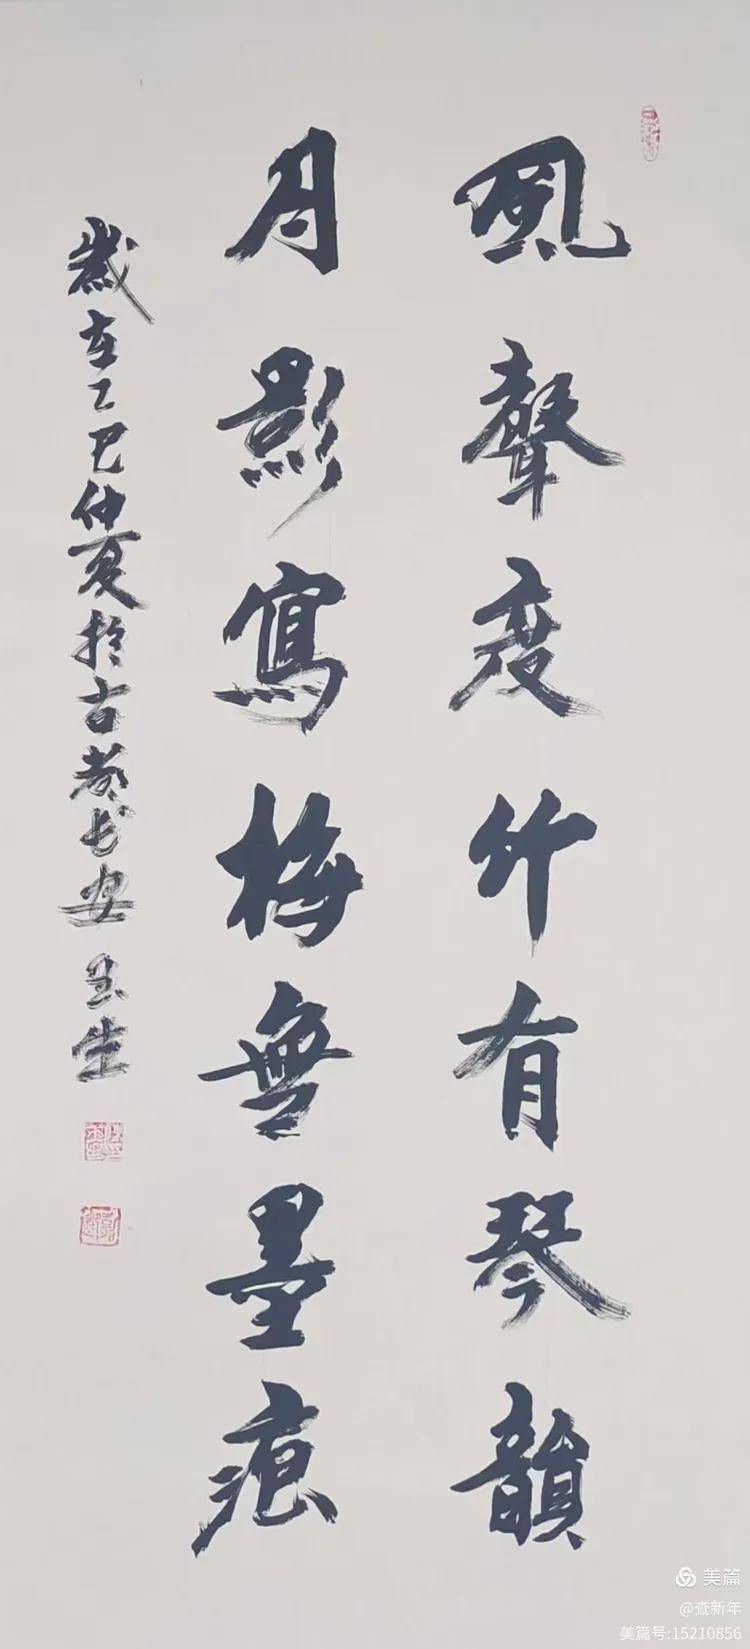 風聲度竹有琴韻
月影寫梅無墨痕
歲在乙巳仲夏於古都长安 玉生
美篇
@查新年
美篇号:15210856